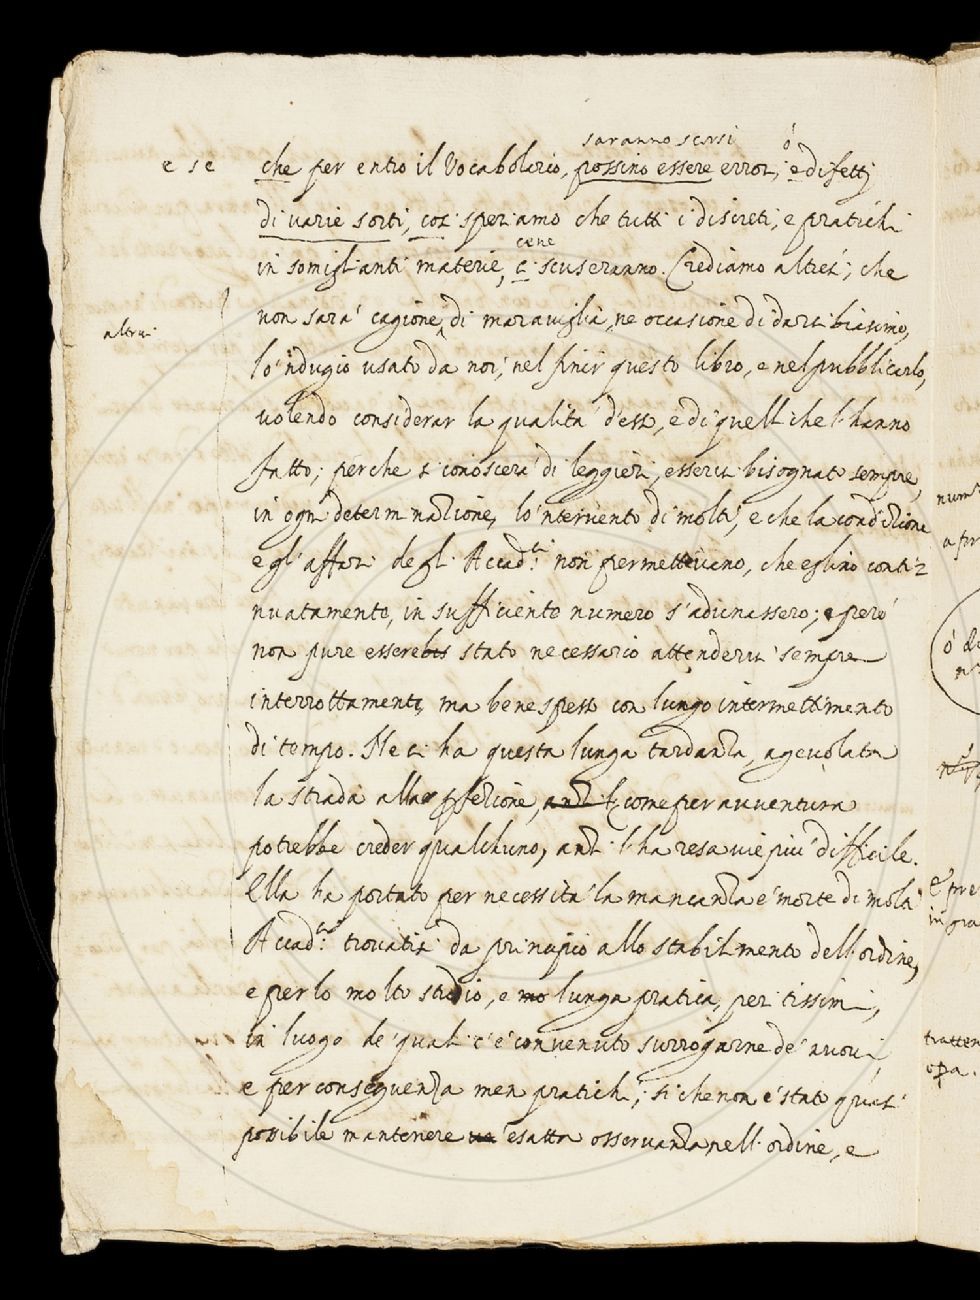 saranno scorsi ò
e se che per entro il Vocabolario, possino essere errori, e difetti
di varie sorti, così speriamo che tutti i discreti, e pratichi
cene
in somiglianti materie, ci scuseranno. Crediamo altresì, che
non sarà cagione, di maraviglia, ne occasione di darci biasimo,
altrui
lo 'ndugio usato da noi, nel finir questo libro, e nel pubblicarlo,
volendo considerar la qualità d'esso, e di quelli che l'hanno
fatto; perche si conoscerà di leggieri, esservi bisognato sempre,
in ogni determinazione, lo 'ntervento di molti, e che la condizione
e gl' affari degl' Accad.ci non permettevano, che eglino conti=
nuatamente, in sufficiente numero s'adunassero; e però
non pure essere stato necessario attendervi sempre
interrottamente, ma bene spesso con lungo intermettimento
di tempo. Ne ci ha questa lunga tardanza, agevolata
la strada alla perfezione, anzi come per avventura
potrebbe creder qualchuno, anzi l'ha resa vie più difficile.
Ella ha portato per necessità la mancanza e morte di molti
Accad.ci trovatisi da principio allo stabilimento dell'ordine,
e per lo molto studio, e mo lunga pratica, peritissimi,
in luogo de' quali c'è convenuto surrogarne de' nuovi,
e per conseguenza men pratichi, sì che non è stato quasi
possibile mantenere ue esatta osservanza nell'ordine, e